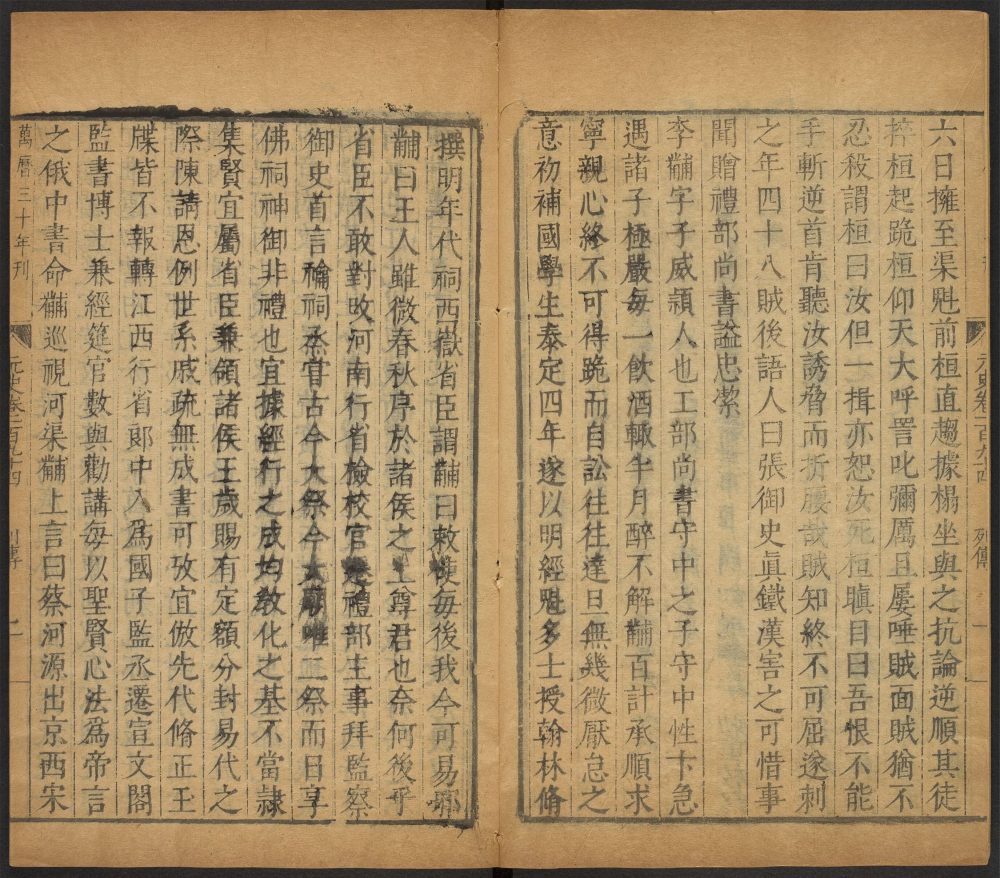 六日擁至渠魁前桓直趨據榻坐與之抗論逆順其徒
捽桓起跪桓仰天大呼詈叱彌厲且屢唾賊面賊猶不
忍殺謂桓曰汝但一揖亦恕汝死桓瞋目曰吾恨不能
手斬逆首肯聽汝誘脅而折腰哉賊知終不可屈遂刺
之年四十八賊後語人曰張御史真鐵漢害之可惜事
聞贈禮部尚書謚忠潔
李黼字子威潁人也工部尚書守中之子守中性卞急
遇諸子極嚴每一飲酒輒半月醉不解黼百計承順求
寧親心終不可得跪而自訟往往達旦無幾微厭怠之
意初補國學生泰定四年遂以明經魁多士授翰林脩
元史卷一百九十四
列傳
撰明年代祠西嶽省臣謂黼曰敕使每後我今可易邪
黼曰王人雖微春秋序於諸侯之上尊君也奈何後乎
省臣不敢對改河南行省檢校官遷禮部主事拜監察
御史首言禴祠烝嘗古今大祭今太廟唯二祭而日享
佛祠神御非禮也宜據經行之成均教化之基不當隸
集賢宜屬省臣兼領諸侯王歲賜有定額分封易代之
際陳請恩例世系戚疏無成書可攷宜倣先代脩正玉
牒皆不報轉江西行省郎中入爲國子監丞遷宣文閣
監書博士兼經筵官數與勸講每以聖賢心法爲帝言
之俄中書命黼巡視河渠黼上言曰蔡河源出京西宋
萬曆三十年刊
元史卷一百九十四
列傳